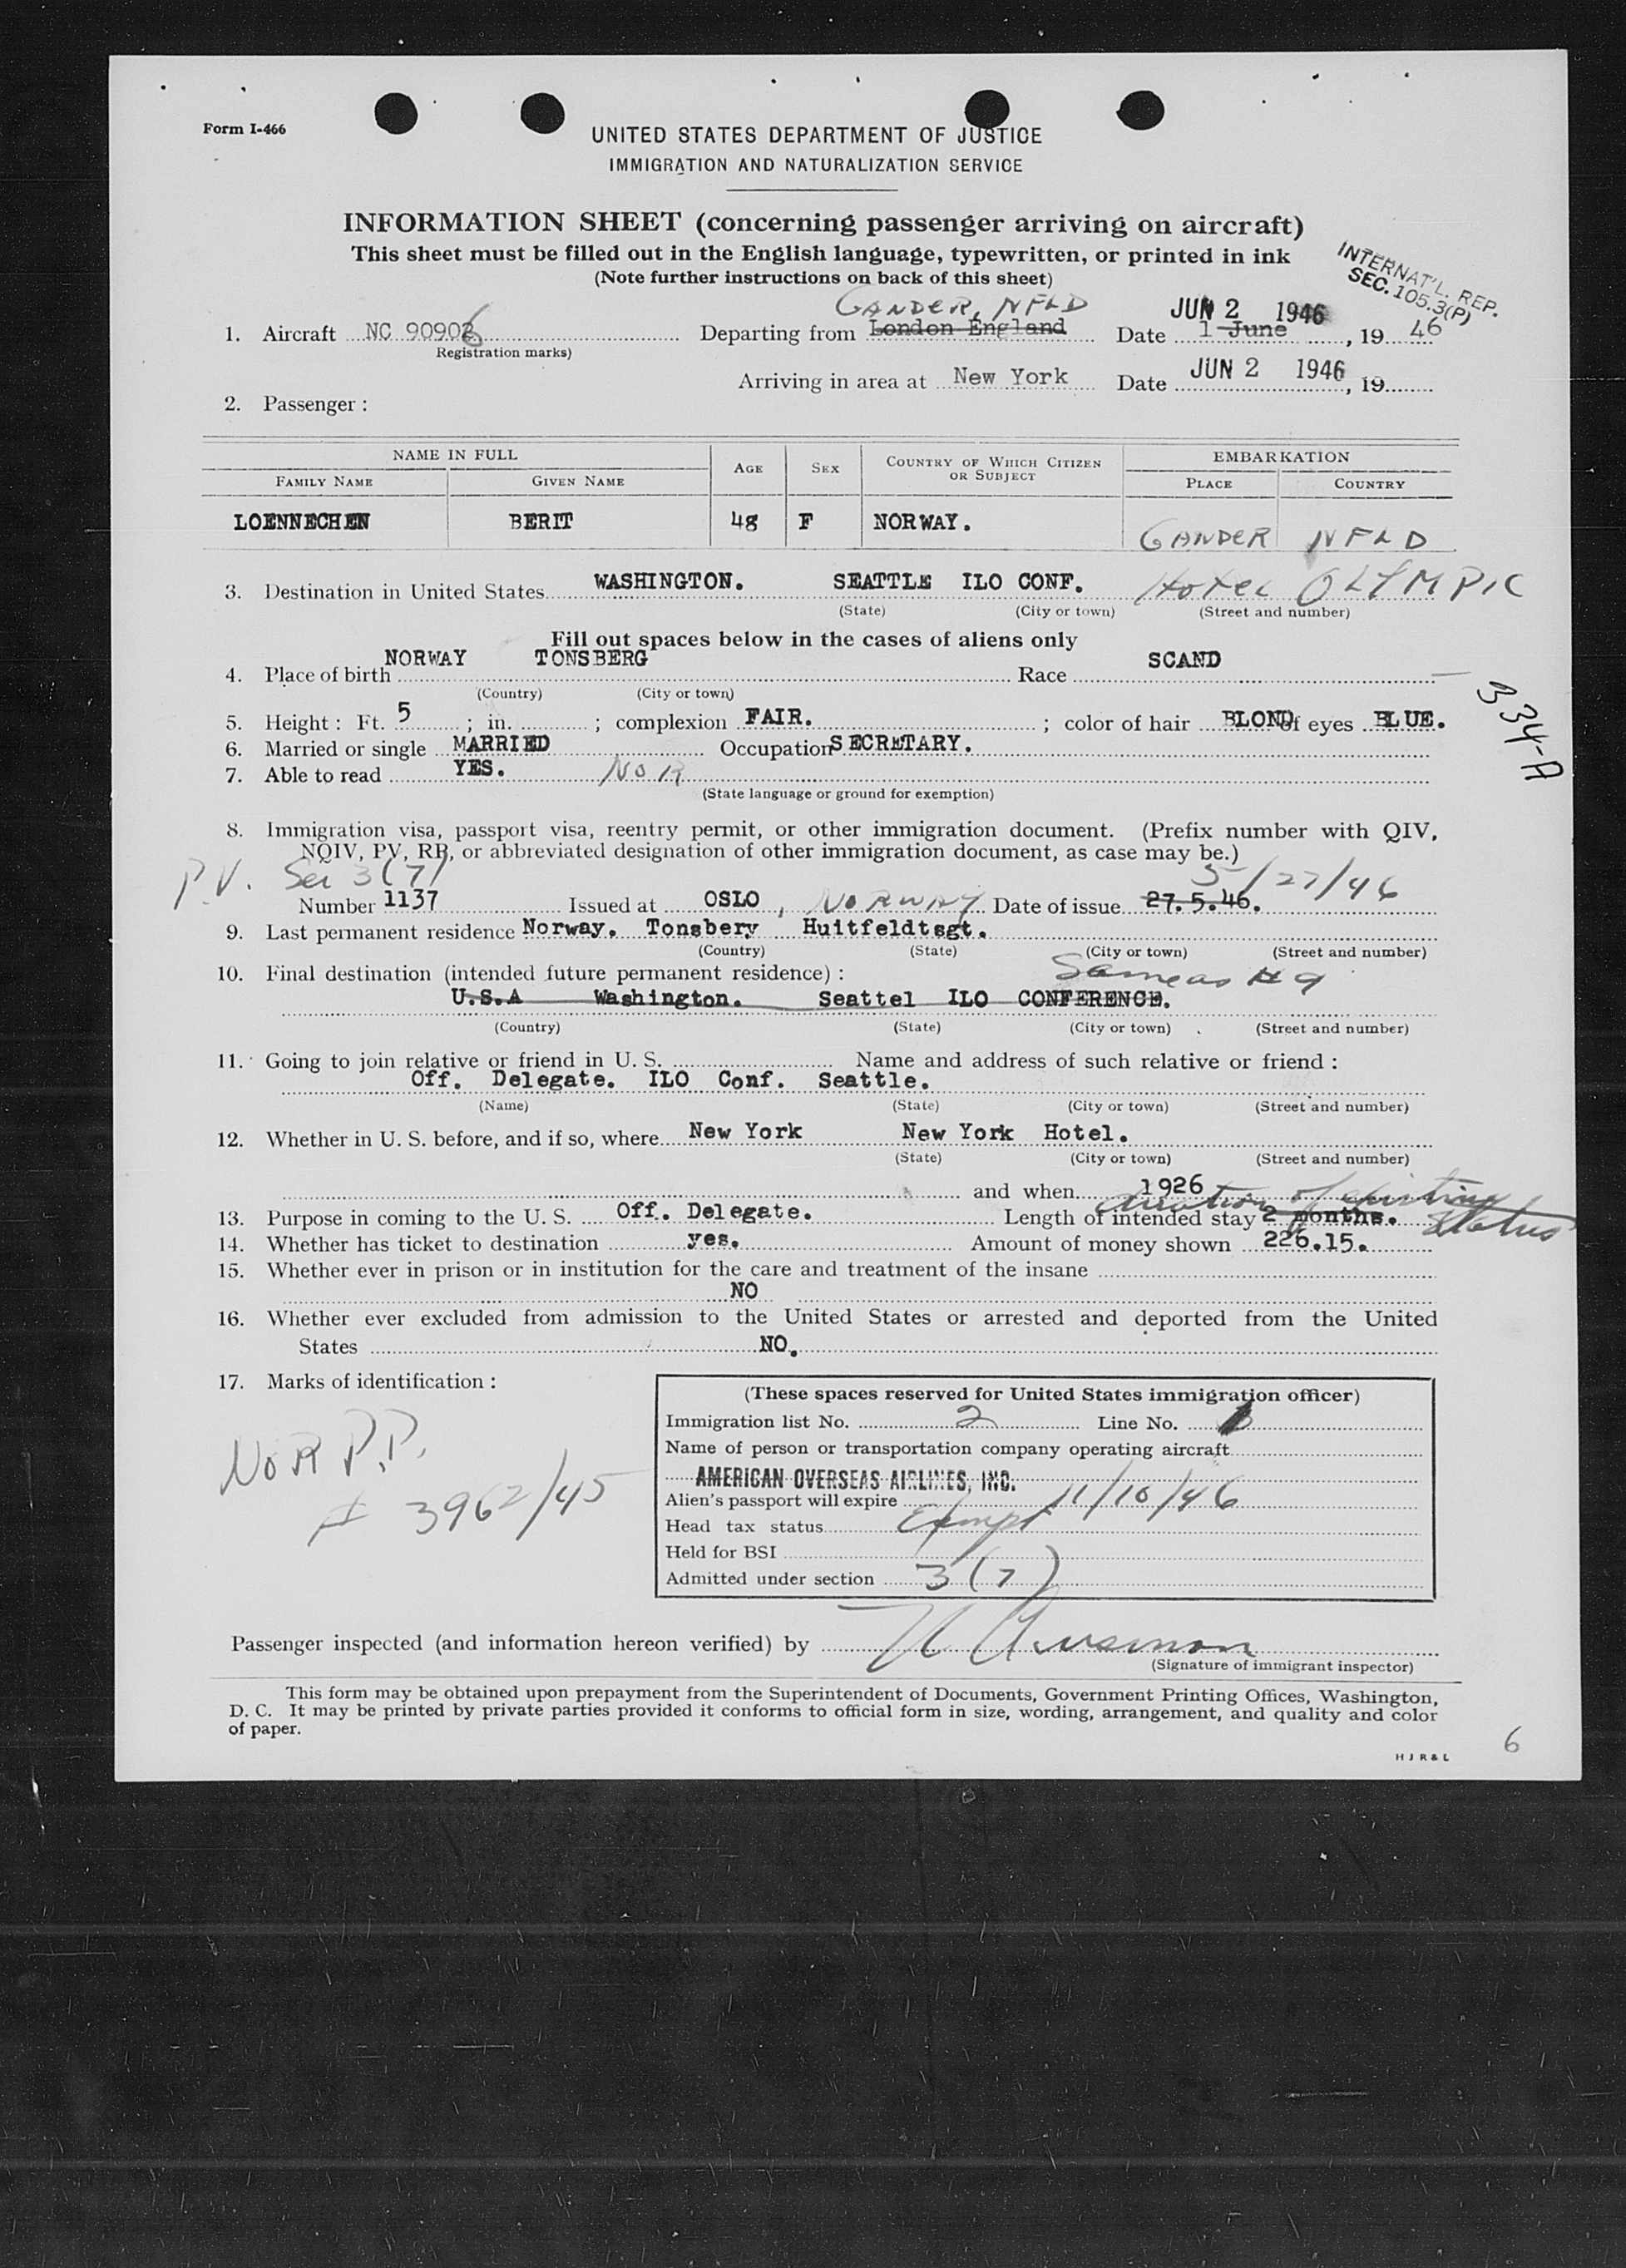 Form I-466
UNITED STATES DEPARTMENT OF JUSTICE
IMMIGRATION AND NATURALIZATION SERVICE
INFORMATION SHEET (concerning passenger arriving on aircraft)
This sheet must be filled out in the English language, typewritten, or printed in ink
(Note further instructions on back of this sheet)
INTERNAT'L. REP.
SEC. 105.3(P)
GANDER, NFLD JUN 2 1946
1. Aircraft NC 90906 Departing from London England Date 1 June, 19 46
Registration marks)
Arriving in area at New York Date JUN 2 1946, 19
2. Passenger :
NAME IN FULL AGE SEX COUNTRY OF WHICH CITIZEN OR SUBJECT EMBARKATION
FAMILY NAME GIVEN NAME PLACE COUNTRY
LOENNECHEN BERIT 48 F NORWAY. GANDER NFLD
3. Destination in United States WASHINGTON. SEATTLE ILO CONF. Hotel OLYMPIC
(State) (City or town) (Street and number)
Fill out spaces below in the cases of aliens only
4. Place of birth NORWAY TONSBERG Race SCAND
(Country) (City or town)
334-A
5. Height : Ft. 5 ; in. ; complexion FAIR. ; color of hair BLOND of eyes BLUE.
6. Married or single MARRIED Occupation SECRETARY.
7. Able to read YES. NOR
(State language or ground for exemption)
8. Immigration visa, passport visa, reentry permit, or other immigration document. (Prefix number with QIV,
NQIV, PV, RP, or abbreviated designation of other immigration document, as case may be.)
P.V. Sec 3(7) 5/27/46
Number 1137 Issued at OSLO, NORWAY Date of issue 27.5.46.
9. Last permanent residence Norway. Tonsbery Huitfeldtsgt.
(Country) (State) (City or town) (Street and number)
10. Final destination (intended future permanent residence) : Same as #9
U.S.A Washington. Seattel ILO CONFERENCE.
(Country) (State) (City or town) (Street and number)
11. Going to join relative or friend in U. S. Name and address of such relative or friend :
Off. Delegate. ILO Conf. Seattle.
(Name) (State) (City or town) (Street and number)
12. Whether in U. S. before, and if so, where New York New York Hotel.
(State) (City or town) (Street and number)
and when 1926
duration of existing status
13. Purpose in coming to the U. S. Off. Delegate. Length of intended stay 2 months.
14. Whether has ticket to destination yes. Amount of money shown 226.15.
15. Whether ever in prison or in institution for the care and treatment of the insane
NO
16. Whether ever excluded from admission to the United States or arrested and deported from the United
States NO.
17. Marks of identification :
NOR P.P.
# 3962/45
(These spaces reserved for United States immigration officer)
Immigration list No. 2 Line No.
Name of person or transportation company operating aircraft
AMERICAN OVERSEAS AIRLINES, INC.
Alien's passport will expire 11/10/46
Head tax status Exempt
Held for BSI
Admitted under section 3(7)
Passenger inspected (and information hereon verified) by
(Signature of immigrant inspector)
This form may be obtained upon prepayment from the Superintendent of Documents, Government Printing Offices, Washington,
D. C. It may be printed by private parties provided it conforms to official form in size, wording, arrangement, and quality and color
of paper.
H J R & L
6